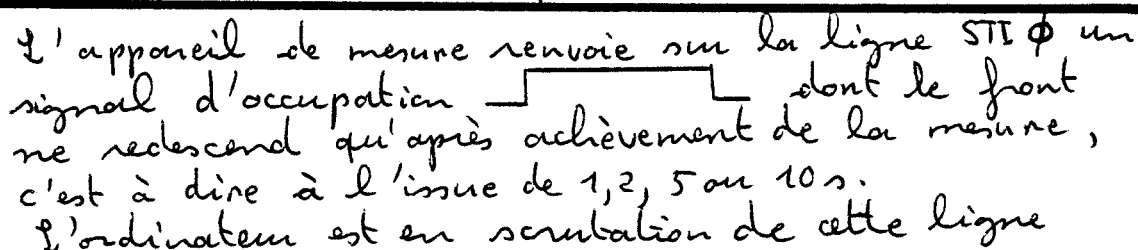 L'appareil de mesure renvoie sur la ligne STI φ un
signal d'occupation dont le front
ne redescend qu'après achèvement de la mesure,
c'est à dire à l'issue de 1, 2, 5 ou 10 s.
L'ordinateur est en scrutation de cette ligne